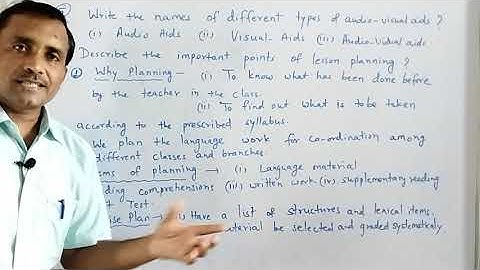 Write the names of different types of audio-visual aids?
(i) Audio Aids (ii) Visual-Aids (iii) Audio-Visual aids
Describe the important points of lesson planning?
① Why Planning - (i) To know what has been done before
by the teacher in the class.
(ii) To find out what is to be taken
according to the prescribed syllabus.
We plan the language work for co-ordination among
different classes and branches.
of planning → (i) Language material
comprehensions (iii) written work (iv) supplementary reading
Test.
Plan → Have a list of structures and lexical items,
material be selected and graded systematicaly.